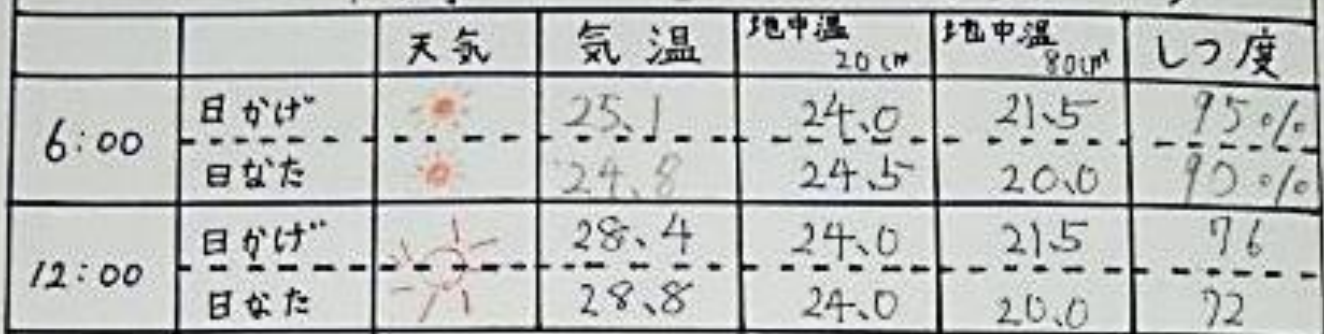 天気 気温 地中温20cm 地中温80cm しつ度
6:00 日かげ 25.1 24.0 21.5 95%
日なた 24.8 24.5 20.0 90%
12:00 日かげ 28.4 24.0 21.5 76
日なた 28.8 24.0 20.0 72